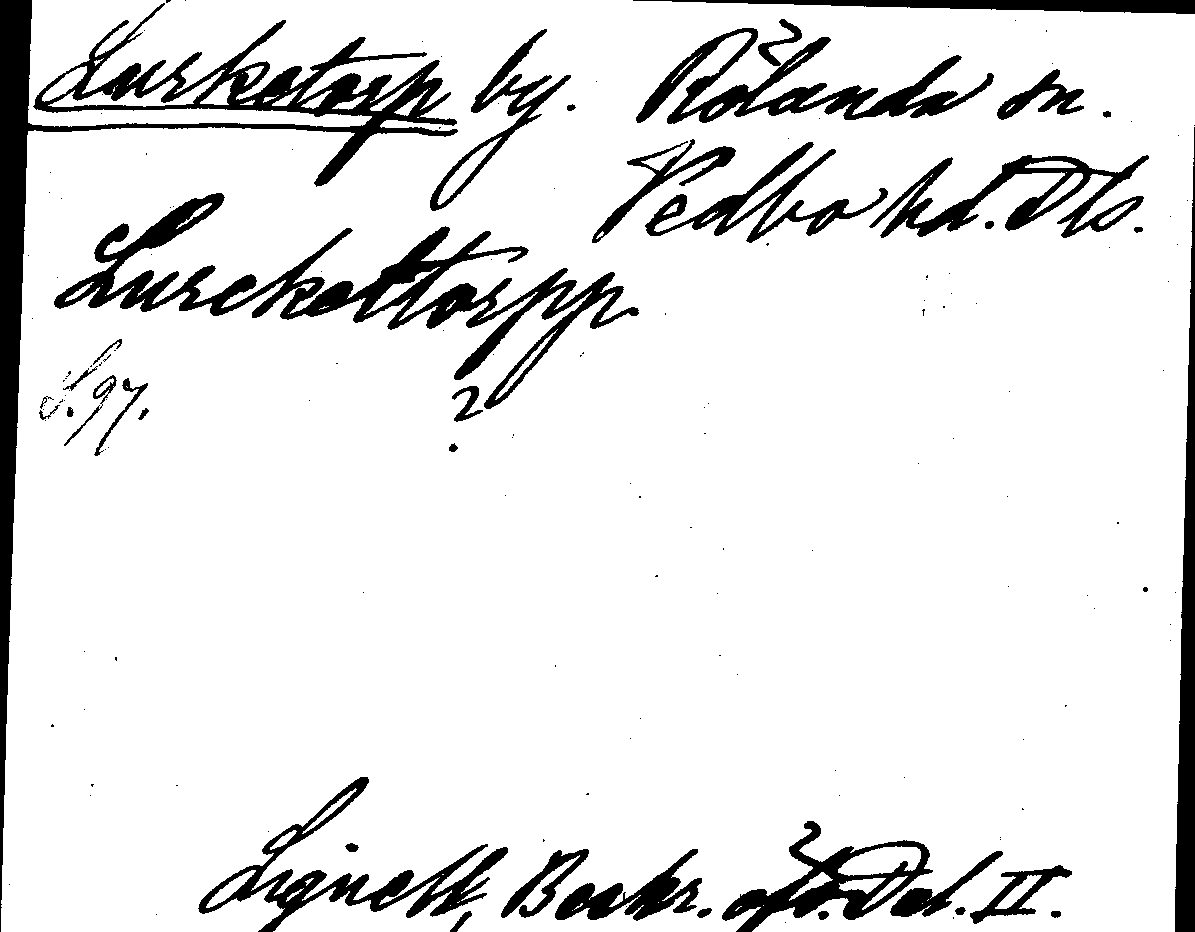 Lurketorp by. Rölanda sn.
Vedbo hd. Dls.
Lurckettorpp.
S. 97. ?
Lignell, Beskr. öfv. Dal. II.